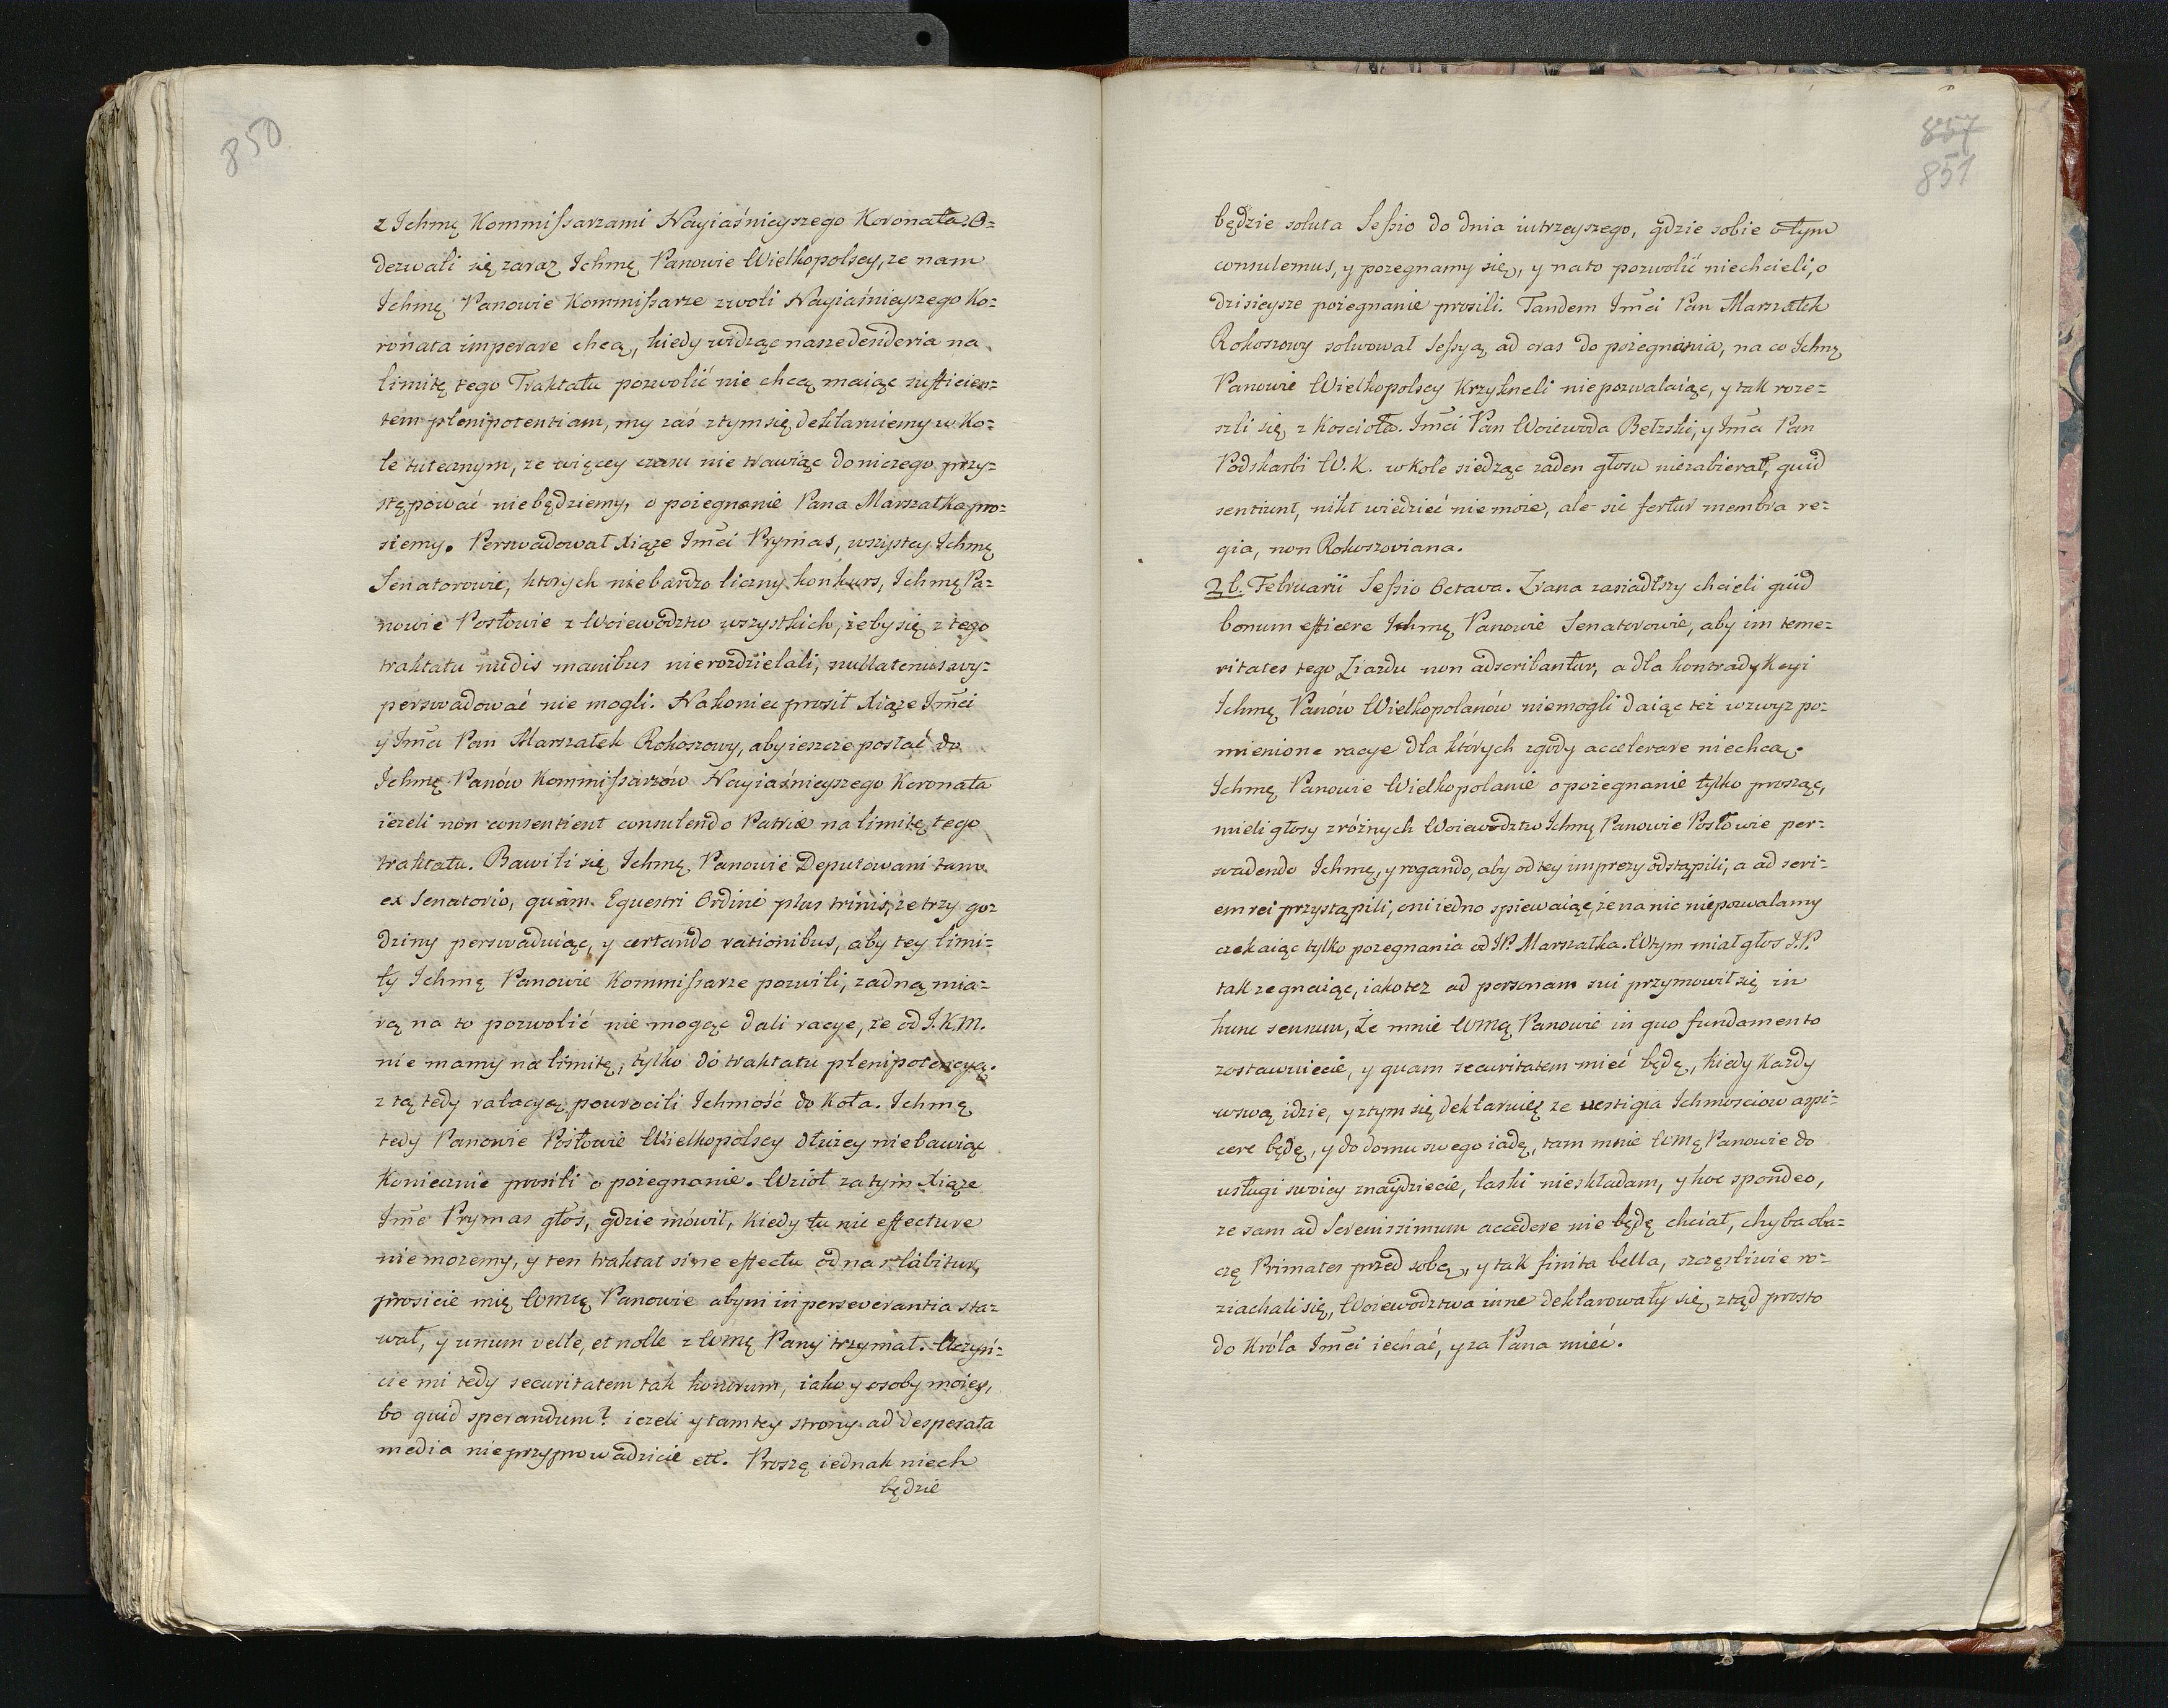 850
z Ichmę Kommissarzami Nayiaśnieyszego Koronata. O=
dezwali się zaraz Ichmę Panowie Wielkopolscy, ze nam
Ichmę Panowie Kommissarze zwoli Nayiaśnieyszego Ko=
ronata imperare chcą, kiedy widząc nasze desideria na
limitę tego Traktatu pozwolić nie chcą maiąc sufficien=
tem plenipotentiam, my zaś ztym się deklaruiemy w Ko=
le tutecznym, ze więcey czasu nie trawiąc do niczego przy=
stępować niebędziemy, o pożegnanie Pana Marszałka pro=
siemy. Perswadował Xiąze Imci Prymas, wszyscy Ichmę
Senatorowie, ktorych niebardzo liczny konkurs, Ichmę Pa=
nowie Posłowie z Woiewodztw wszystkich, żeby się z tego
traktatu nudis manibus nierozdzielali, nullatenus wy=
perswadować nie mogli. Nakoniec prosił Xiąze Imci
y Imci Pan Marszałek Rokoszowy, aby ieszcze postać do
Ichmę Panów Kommissarzów Nayiaśnieyszego Koronata
iezeli non consentient consulendo Patriæ na limitę tego
traktatu. Bawili się Ichmę Panowie Deputowani tam
ex Senatorio, quàm Equestri Ordine plus trinis, ze trzy go=
dziny perswaduiąc, y certando rationibus, aby tey limi=
ty Ichmę Panowie Kommissarze pozwili, zadną mia=
rą na to pozwolić nie mogąc dali racye, ze od J.K.M.
nie mamy na limitę, tylko do traktatu plenipotencyą.
z tą tedy ralacyą powrocili Ichmość do Koła. Ichmę
tedy Panowie Posłowie Wielkopolscy dłużey niebawiąc
Koniecznie prosili o pożegnanie. Wzioł zatym Xiąze
Imc Prymas głos, gdzie mówił, kiedy tu nic effecture
niemozemy, y ten traktat sine effectu od nas labitur,
prosicie mię WMę Panowie abym in perseverantia sta=
wał, y unum velle, et nolle z WMę Pany trzymał. Uczyń=
cie mi tedy securitatem tak honorum, iako y osoby moiey,
bo quid sperandum? iezeli y tamtey strony ad desperata
media nieprzyprowadzicie etc. Proszę iednak niech
będzie
857
851
będzie soluta Sessio do dnia iutrzeyszego, gdzie sobie o tym
consulemus, y pozegnamy się, y nato pozwolić niechcieli, o
dzisieysze pożegnanie prosili. Tandem Imci Pan Marszałek
Rokoszowy solwował Sessyą ad cras do pożegnania, na co Ichmę
Panowie Wielkopolscy Krzyknęli niepozwalaiąc, y tak roze=
szli się z Koscioła. Imci Pan Woiewoda Bełzski, y Imci Pan
Podskarbi W.K. w Kole siedząc żaden głosu niezabierał, quid
sentiunt, nikt wiedzieć niemoże, ale sic fertur membra re=
gia, non Rokoszoviana.
2b. Februarii Sessio Octava. Zrana zasiadłszy chcieli quid
bonum efficere Ichmę Panowie Senatorowie, aby im teme=
ritates tego Ziazdu non adscribantur, a dla kontradykcyi
Ichmę Panów Wielkopolanów niemogli daiąc też wzwyż po=
mienione racye dla których zgody accelerare niechcą.
Ichmę Panowie Wielkopolanie o pożegnanie tylko prosząc,
mieli głosy z różnych Woiewodztw Ichmę Panowie Posłowie per=
svadendo Ichmę, y rogando, aby od tey imprezy odstąpili, a ad seri=
em rei przystąpili, oni iedno spiewaiąc, że na nic niepozwalamy
czekaiąc tylko pozegnania od JP. Marszałka. Wtym miał głos J.P.
tak zegnaiąc, iako tez ad personam sui przymowił się in
hunc sensum, Że mnie WMę Panowie in quo fundamento
zostawuiecie, y quam securitatem mieć będę, kiedy Kazdy
wswą idzie, y ztym się deklaruię ze vestigia Ichmosciow aspi=
cere będę, y do domu swego iadę, tam mnie WMę Panowie do
usługi swoiey znaydziecie, laski nieskładam, y hoc spondeo,
ze sam ad Serenissimum accedere nie będę chciał, chyba oba=
czę Primates przed sobą, y tak finita bella, szczęsliwie ro=
ziachali się, Woiewodztwa inne deklarowały się, ztąd prosto
do Króla Imci iechać, y za Pana mieć.